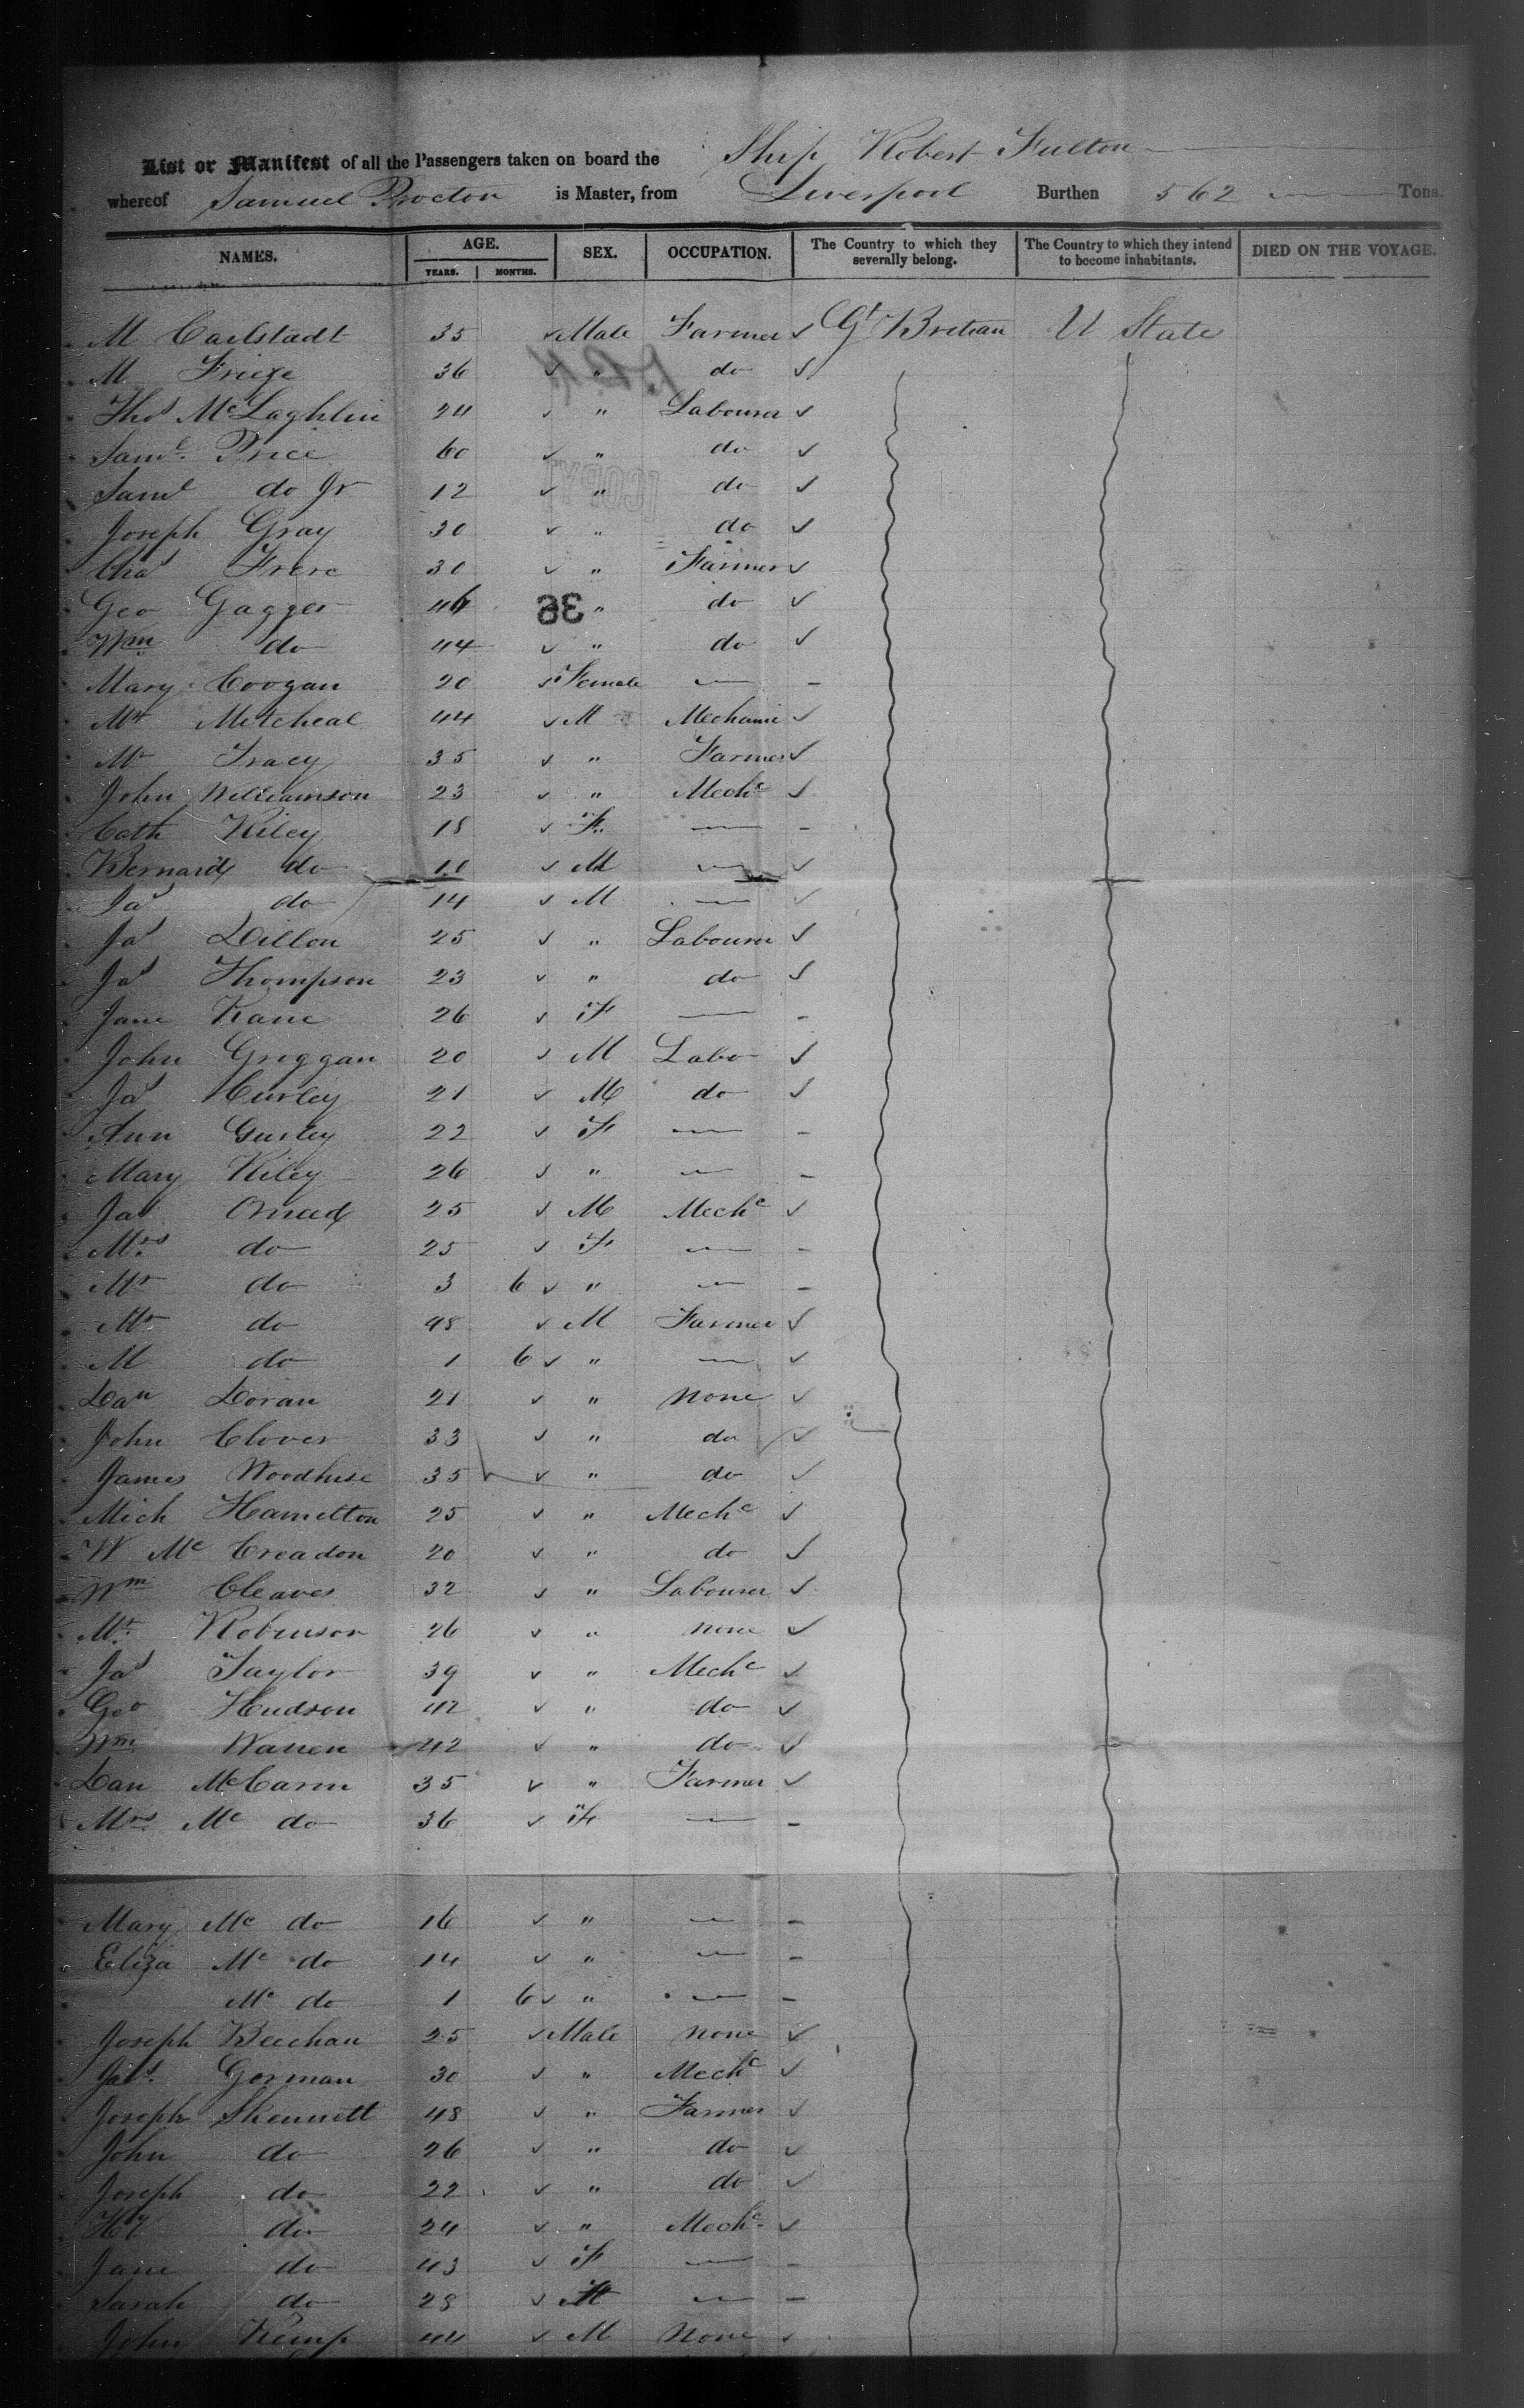 List or Manifest of all the Passengers taken on board the Ship Robert Fulton
whereof Samuel Proctor is Master, from Liverpool Burthen 562 Tons.
NAMES. AGE. SEX. OCCUPATION. The Country to which they severally belong. The Country to which they intend to become inhabitants. DIED ON THE VOYAGE.
YEARS. MONTHS.
M Carlstadt 35 Male Farmer Gt Britian U State
M Frieze 36 " do
Thos McLaghlin 24 " Labourer
Saml Price 60 " do
Saml do Jr 12 " do
Joseph Gray 30 " do
Chas Frere 30 " Farmer
Geo Gagger 46 " do
Wm do 44 " do
Mary Coogan 20 Female
Mr Mitcheal 44 M Mechani
Mr Tracy 35 " Farmer
John Williamson 23 " Mechc
Cath Kiley 18 F
Bernard do 10 M
Jas do 14 M
Jas Dillon 25 " Labourer
Jas Thompson 23 " do
Jane Kane 26 F
John Griggan 20 M Labo
Jas Curley 21 M do
Ann Gurley 22 F
Mary Kiley 26 "
Jas Omead 25 M Mechc
Mrs do 25 F
Mr do 3 6 "
Mr do 48 M Farmer
M do 1 6 "
Dan Doran 21 " None
John Clover 33 " do
James Woodhise 35 " do
Mich Hamilton 25 " Mechc
W Mc Creadon 20 " do
Wm Cleaves 32 " Labourer
Mr Robinson 26 " none
Jas Taylor 39 " Mechc
Geo Hudson 42 " do
Wm Warren 42 " do
Dan McCarm 35 " Farmer
Mrs Mc do 36 F
Mary Mc do 16 "
Eliza Mc do 14 "
Mc do 1 6 "
Joseph Beechan 25 Male none
Jas. Gorman 30 " Mechc
Joseph Skennett 48 " Farmer
John do 26 " do
Joseph do 22 " do
Hy do 24 " Mechc
Jane do 43 F
Sarah do 28
John Kemp 44 M None